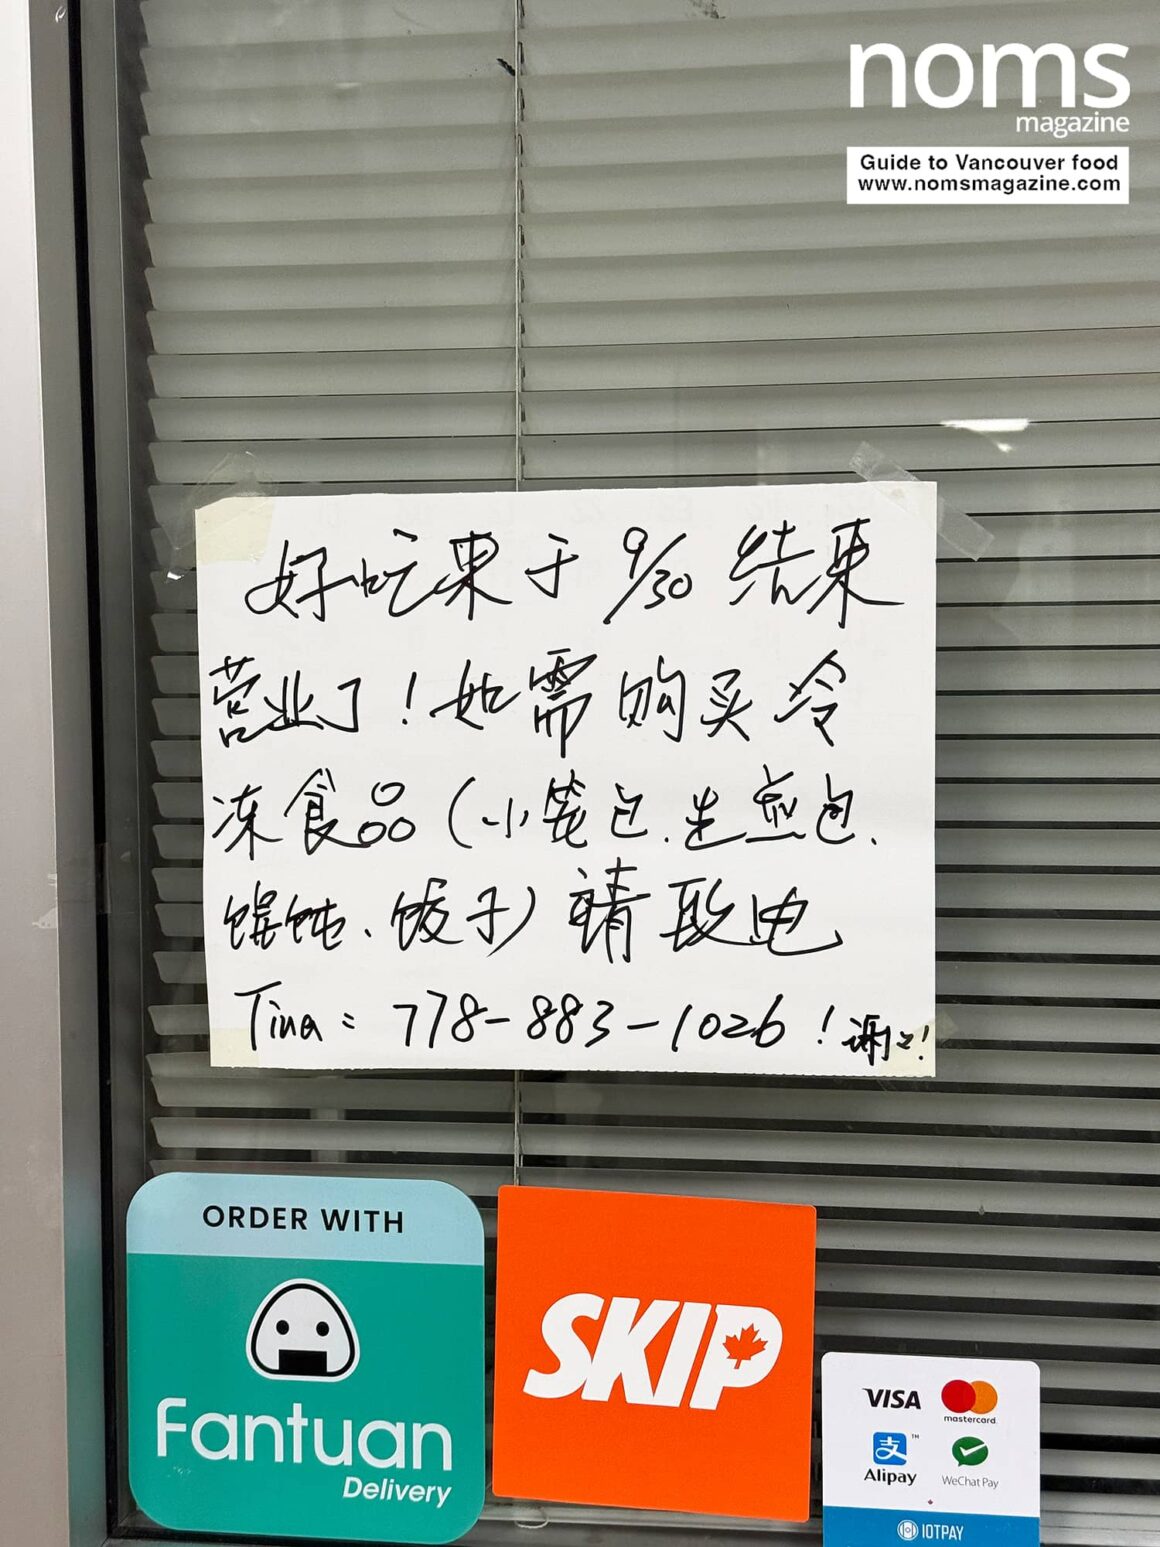 noms
magazine
Guide to Vancouver food
www.nomsmagazine.com
好吃果于 9/30 结束
营业了！如需购买冷
冻食品（小笼包、生煎包、
馄饨、饺子）请致电
Tina: 778-883-1026！谢谢！
ORDER WITH
Fantuan
Delivery
SKIP
VISA
mastercard.
支
Alipay
TM
WeChat Pay
IOTPAY